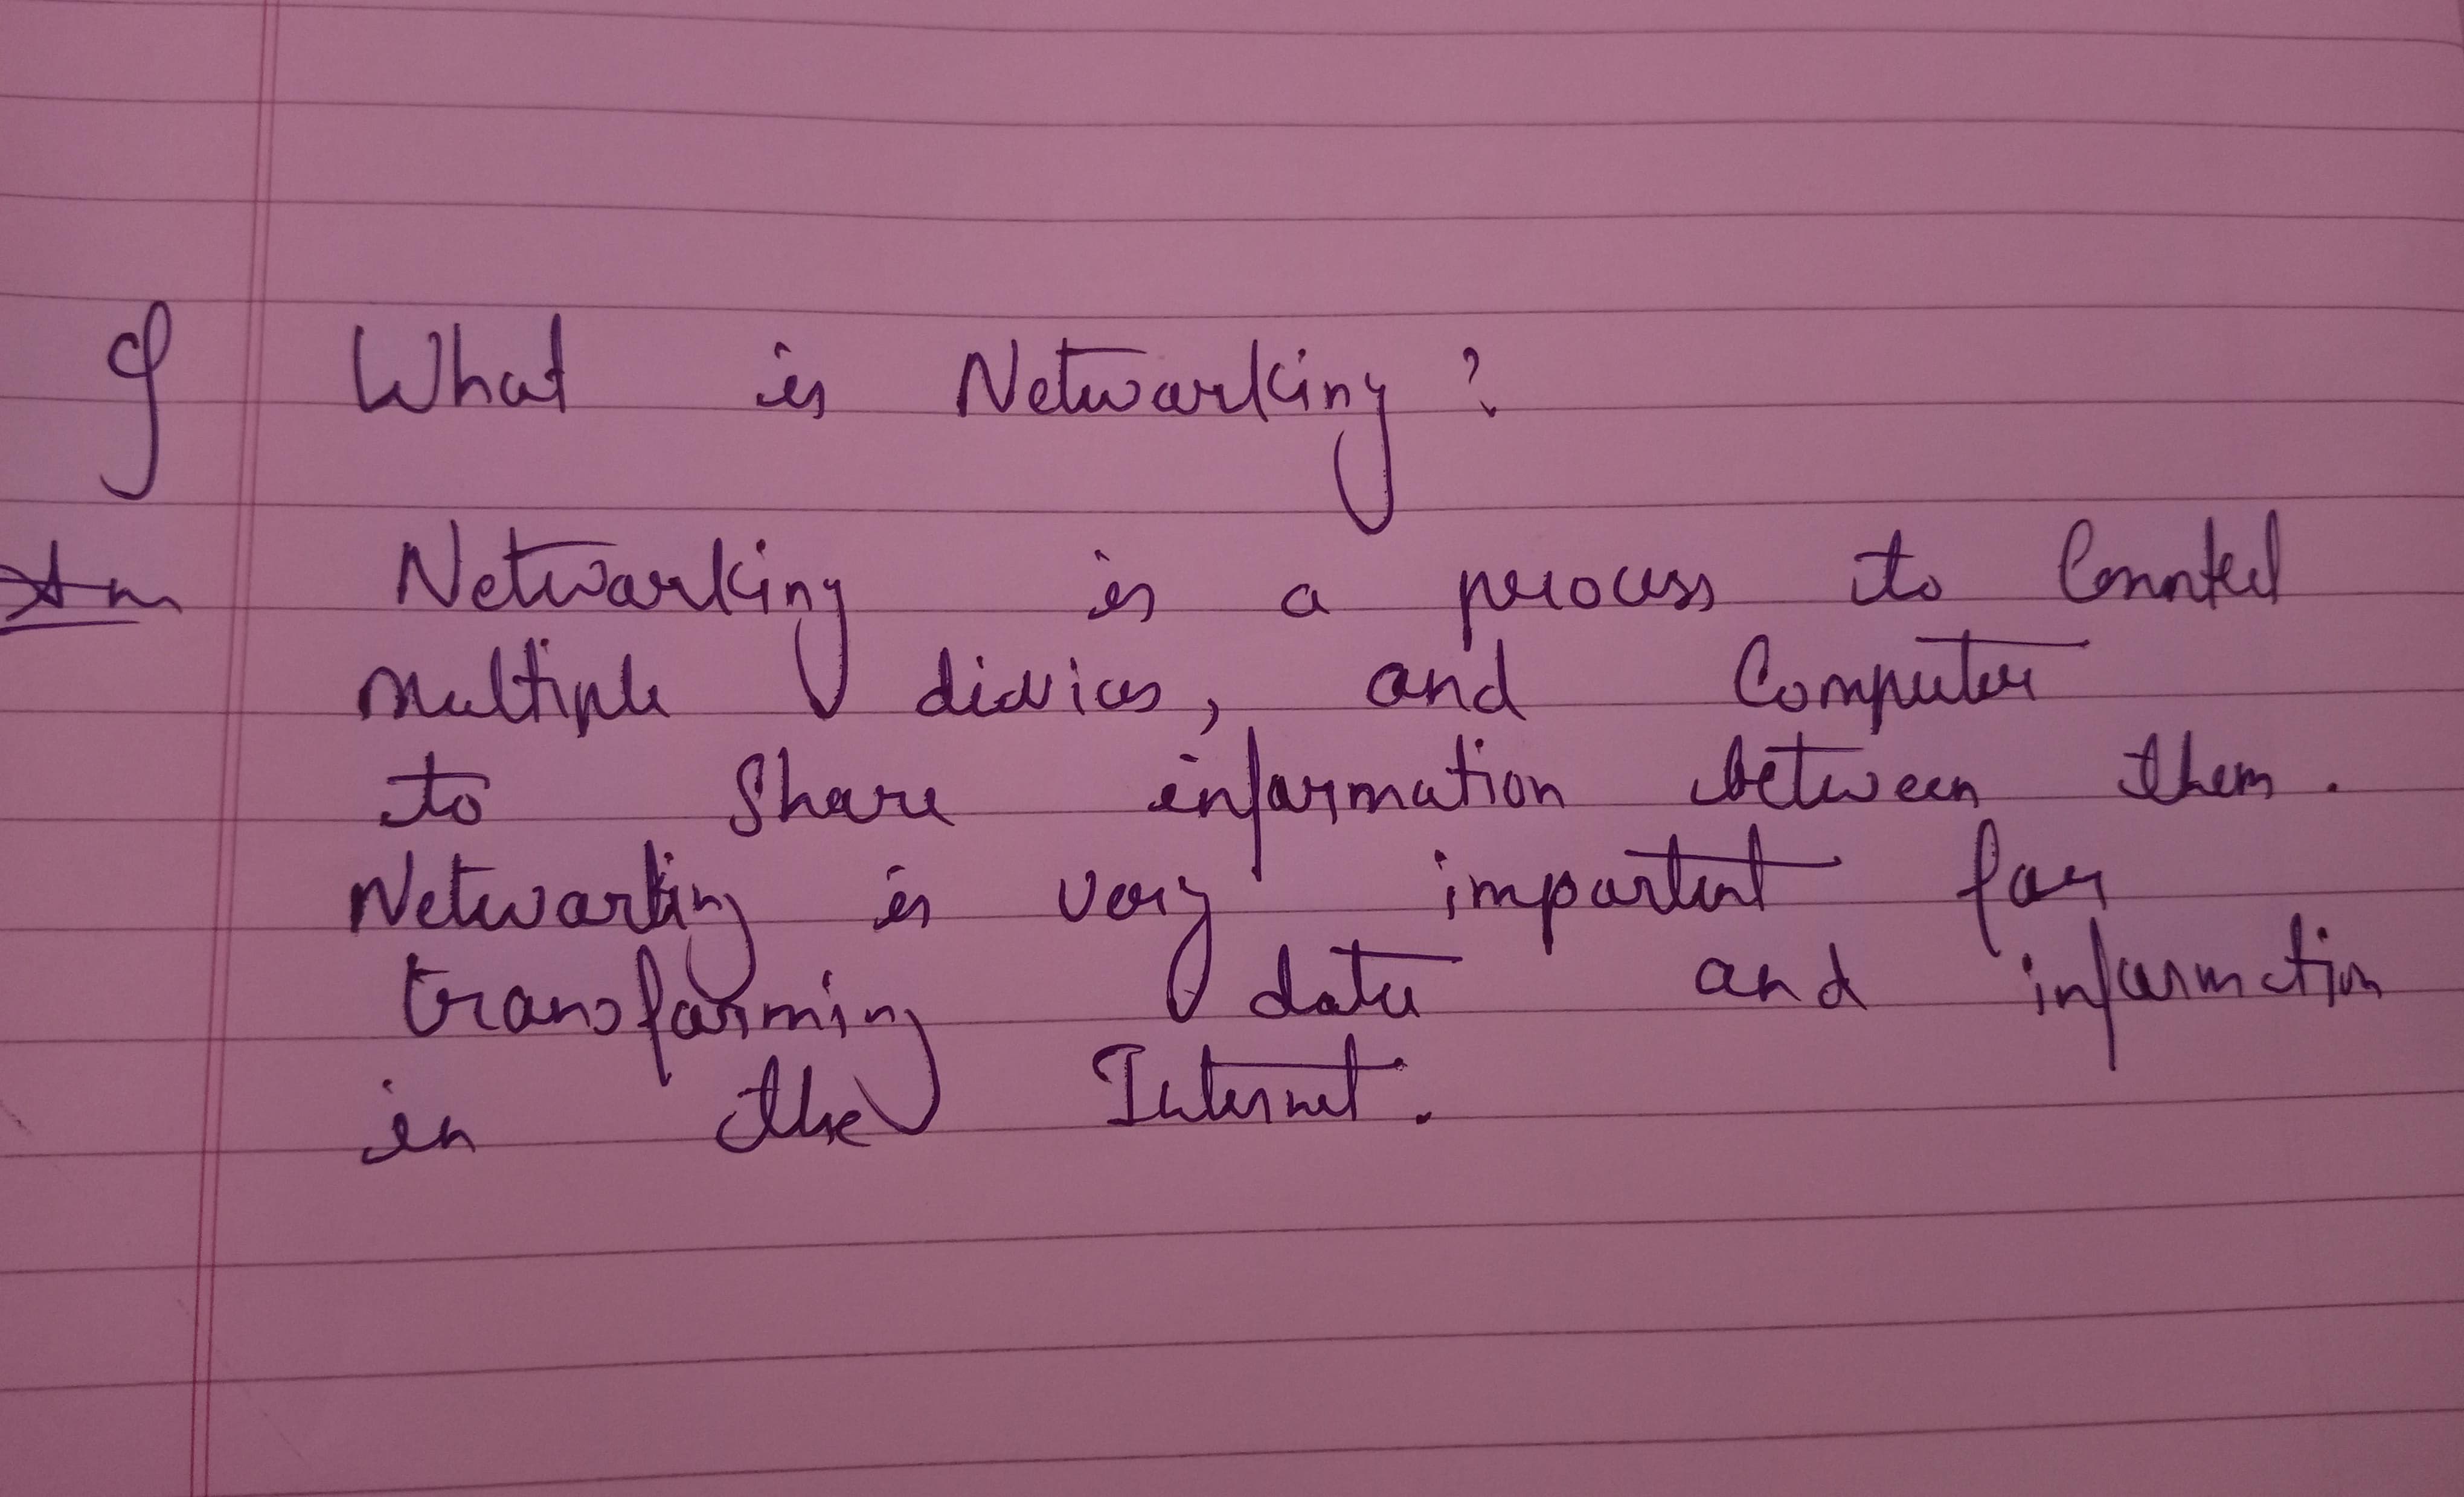 Q What is Networking ?
Ans Networking is a process to Connted
multiple divices, and Computer
to Share information between them.
Networking is very important for
transforming data and information
in the Internet.